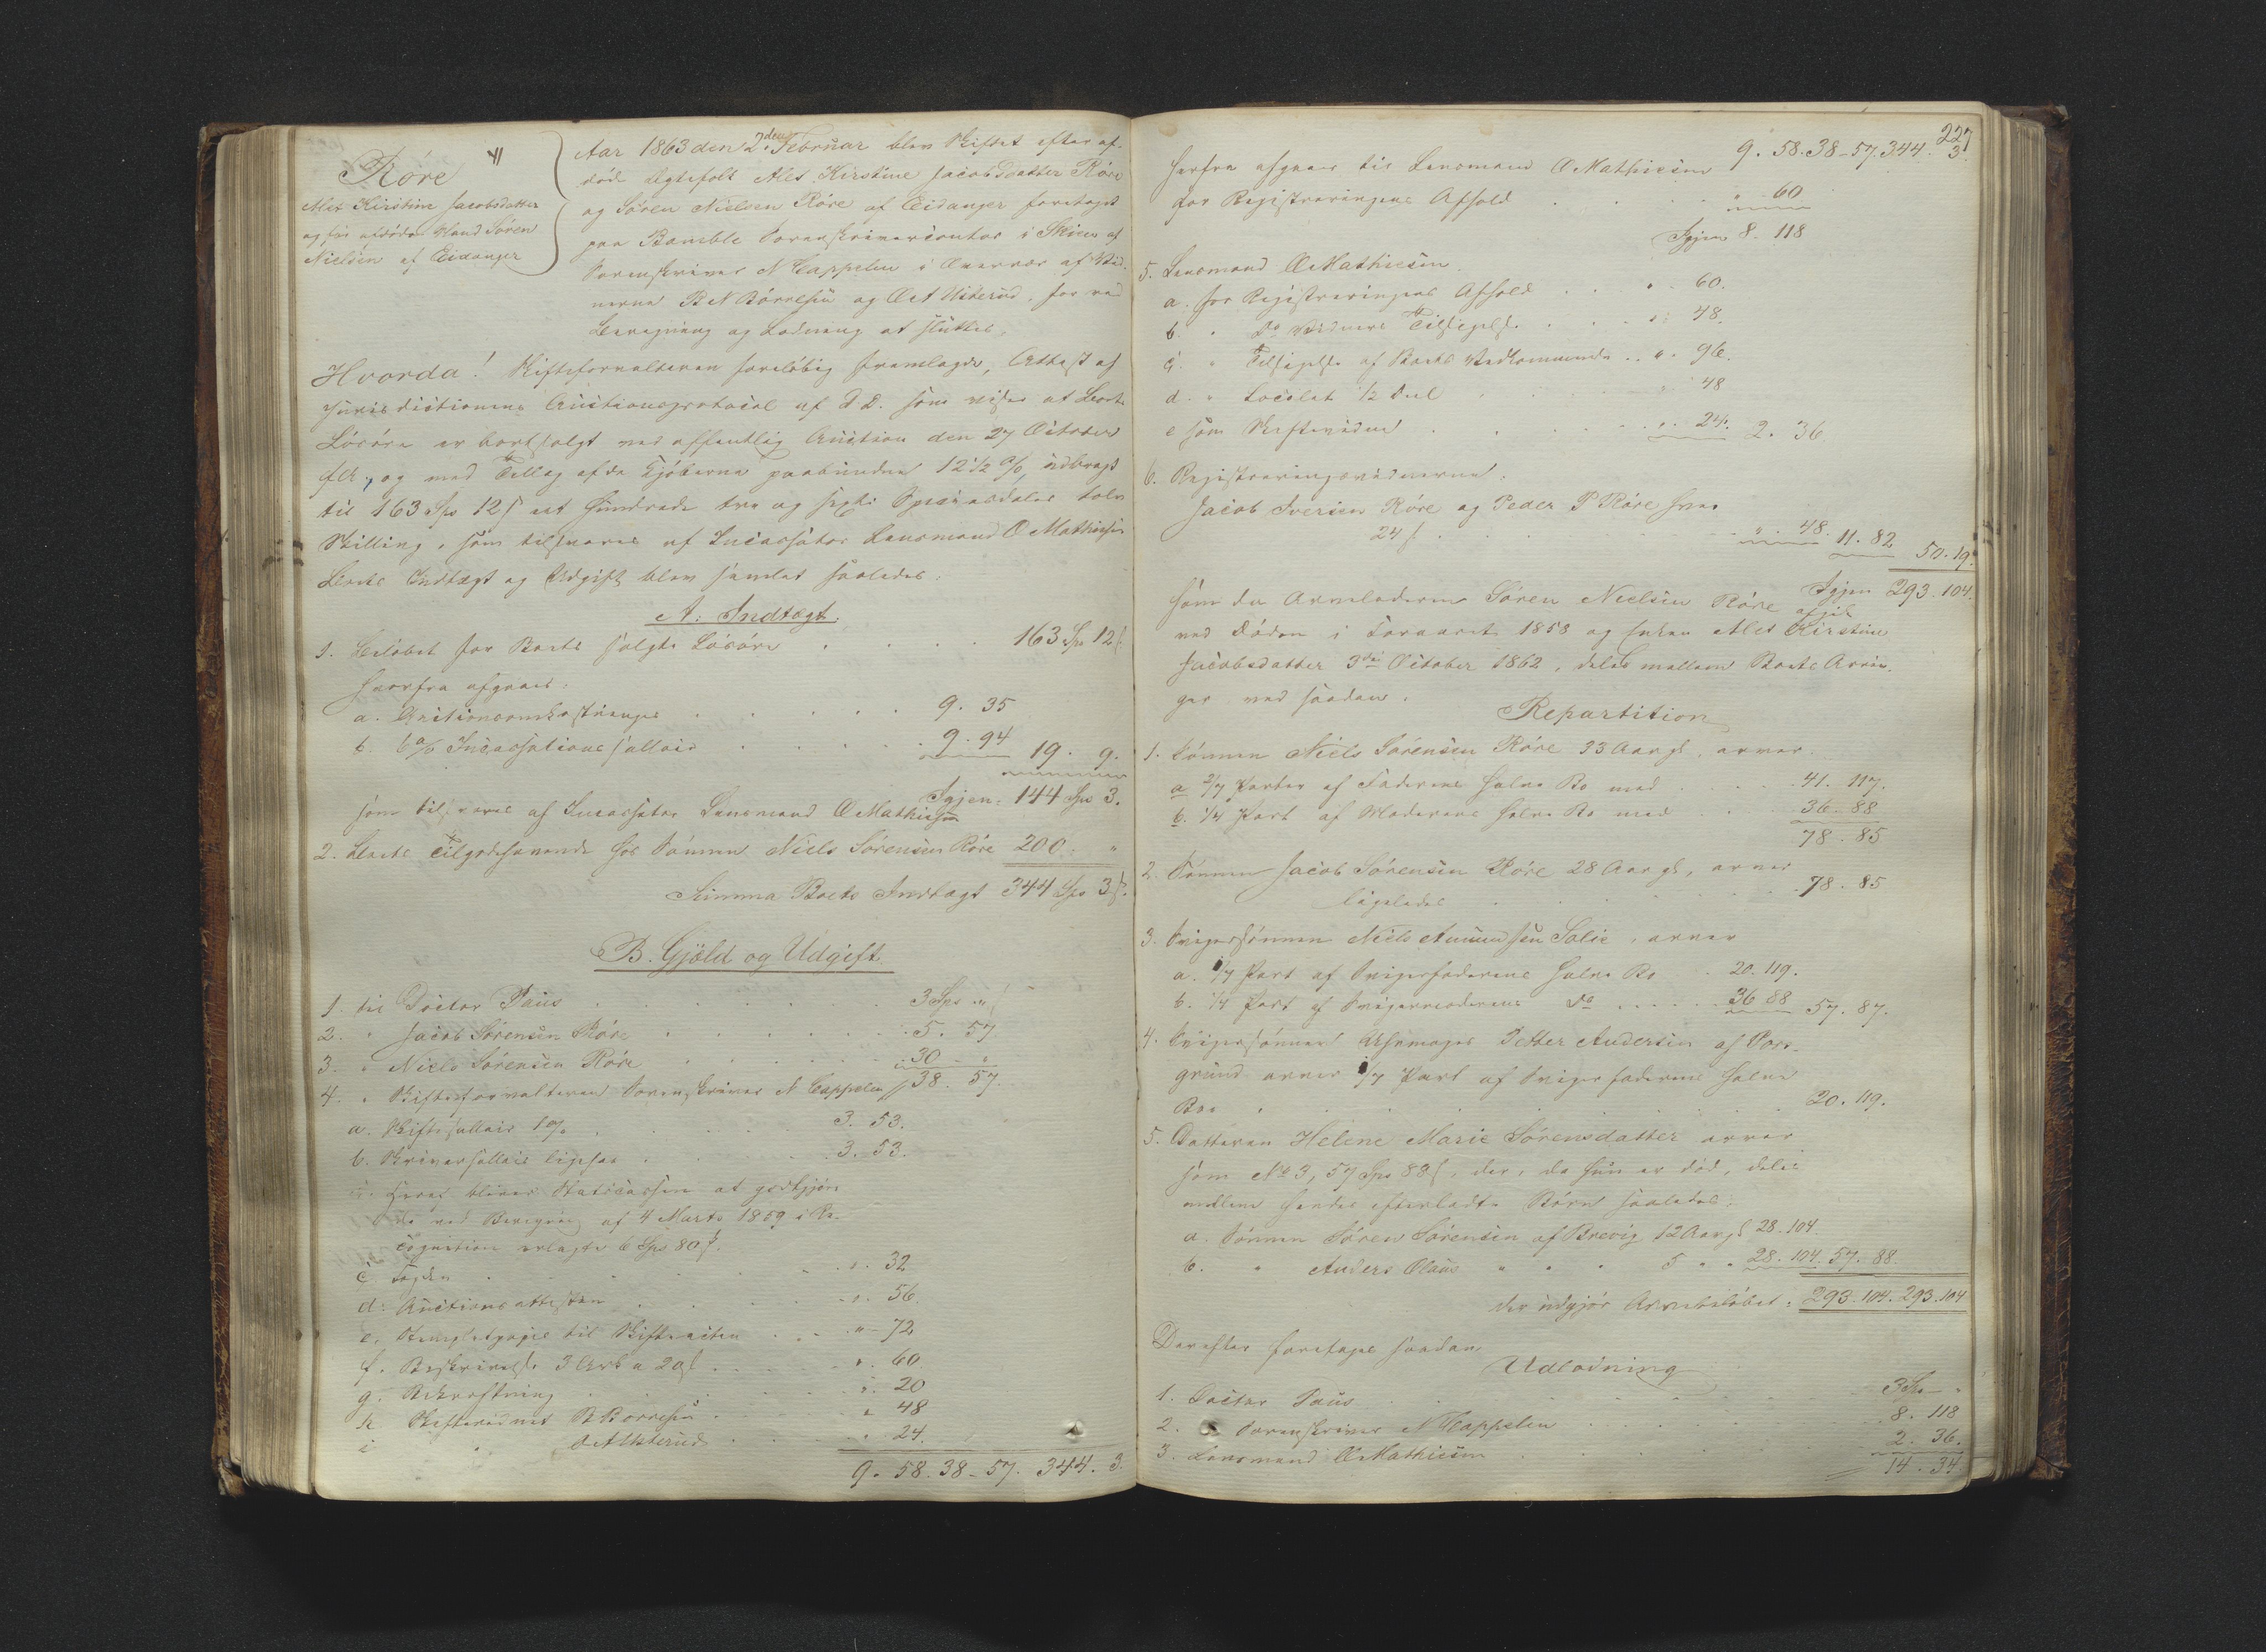 Røre
Alet Kirstine Jacobsdatter
og før afdøde Mand Søren
Nielsen af Eidanger
Aar 1863 den 2den Februar blev Skiftet efter af-
død Egtefolk Alet Kirstine Jacobsdatter Røre
og Søren Nielsen Røre af Eidanger foretaget
paa Bamble Sorenskrivercontor i Skien af
Sorenskriver N Cappelen i Overvær af Vid-
nerne B N Børresen og O A Usterud, for ved
Beregning og Lodning at sluttes.
Hvorda! Skifteforvalteren foreløbig fremlagde, Attest af
Jurisdictionens Auctionsprotocol af d. D. som viser at Boets
Løsøre er bortsolgt ved offentlig Auction den 27 October
f.A., og med Tillæg af de Kjøberne paabundne 12 1/2 %, udbragt
til 163 Spd 12 s et hundrede tre og sexti Speciesdaler tolv
Skilling, som tilsvares af Incassator Lensmand O Mathiesen
Boets Indtægt og Udgift blev samlet saaledes:
A. Indtægt:
1. Beløbet for Boets solgte Løsøre 163 Spd 12 s.
hvorfra afgaaer:
a. Auctionsomkostninger 9. 35
b. 6 % Incassations sallair 9. 94 19. 9.
Igjen: 144 Spd 3.
som tilsvares af Incassator Lensmand O Mathiesen
2. Boets Tilgodehavende hos Sønnen Niels Sørensen Røre 200. "
Summa Boets Indtægt 344 Spd 3 s.
B. Gjæld og Udgift
1. til Doctor Paus 3 Spd " s
2. " Jacob Sørensen Røre 5. 57
3. " Niels Sørensen Røre 30 - "
4. " Skifteforvalteren Sorenskriver N Cappelen 38. 57.
a. Skiftesallair 1 % 3. 53.
b. Skriversallair ligesaa 3. 53.
Heraf bliver Statscassen at godtgjøre
de ved Bevilgning af 4 Marts 1859 i Re-
cognition erlagte 6 Spd 80 s.
c. ". 32
d. Auctionsattesten ". 56
e. Stempletpapir til Skifteacten " - 72
f. Beskrivelse 3 Ark a 20 s ". 60
g. Bekræftning ". 20
h. Skiftevidnet B Børresen " 48
i " O A Usterud ". 24.
9. 58. 38 - 57. 344. 3.
227
9. 58. 38 - 57. 344. 3.
Herfra afgaaer til Lensmand O Mathiesen
for Registreringens Afhold " 60
Igjen 8. 118
5. Lensmand O Mathiesen.
a. for Registreringens Afhold " 60.
b. " Do Vidners Tilsigelse " 48.
c. " Tilsigelse af Boets Vedkommende ". 96.
d. " Localet 1/2 Deel " 48
e som Skiftevidne ". 24. 2. 36
6. Registreringsvidnerne:
Jacob Iversen Røre og Peder P Røre hver
24 s " 48. 11. 82 50. 19.
Igjen 293. 104.
som da Arveladeren Søren Nielsen Røre afgik
ved Døden i Foraaret 1858 og Enken Alet Kirstine
Jacobsdatter 3die October 1862, deles mellem Boets Arvin-
ger ved saadan.
Repartition
1. Sønnen Niels Sørensen Røre 33 Aar gl. arver
a 2/7 Parter af Faderens halve Bo med 41. 117.
b. 1/4 Part af Moderens halve Bo med 36. 88
78. 85
2. Sønnen Jacob Sørensen Røre 28 Aar gl., arver
ligeledes 78. 85
3. Svigersønnen Niels Amundsen Solie, arver
a. 1/7 Part af Svigerfaderens halve Bo 20. 119.
b. 1/4 Part af Svigermoderens Do 36 88 57. 87.
4. Svigersønnen Uhrmager Petter Andersen af Pors-
grund arver 1/7 Part af Svigerfaderens halve
Bo. 20. 119.
5. Datteren Helene Marie Sørensdatter arver
som No 3, 57 Spd 88 s, der, da hun er død, deles
mellem hendes efterladte Børn saaledes:
a. Sønnen Søren Sørensen af Brevig 12 Aar gl 28. 104
b. " Anders Olaus " " " 5 " " 28. 104. 57. 88.
der udgjør Arvebeløbet: 293. 104. 293. 104
Derefter foretages saadan
Udlodning
1. Doctor Paus 3 Spd - "
2. Sorenskriver N Cappelen 8. 118
3. Lensmand O Mathiesen 2. 36.
14. 34